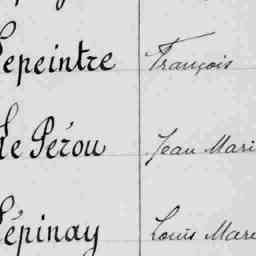 Lepeintre François
Le Pérou Jean Mari
Lépinay Louis Mare